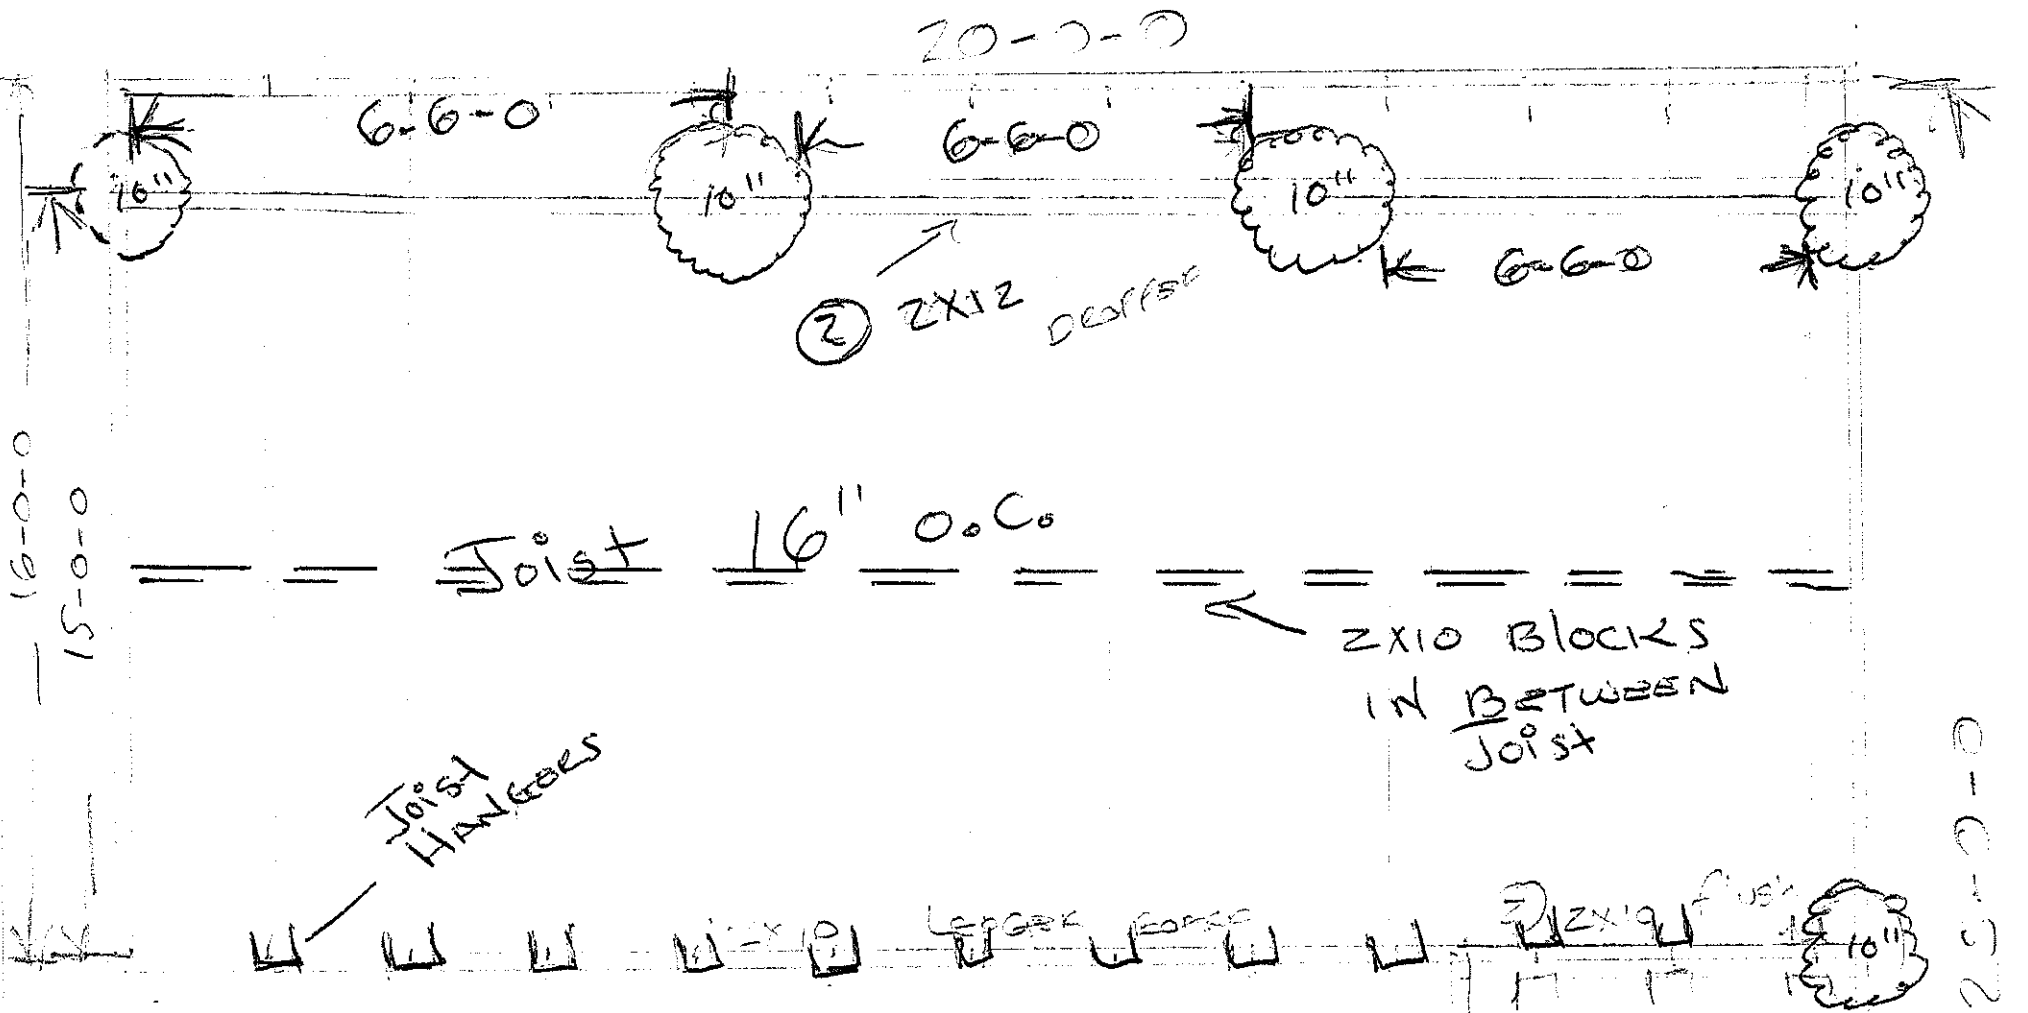 20-0-0
6-6-0
6-6-0
10"
10"
10"
10"
6-6-0
② 2X12 DROPPED
16-0-0
15-0-0
Joist 16" O.C.
2X10 BlOCKS
IN BETWEEN
Joist
Joist
HANGERS
2X10 LEDGER
② 2X10 flush
10"